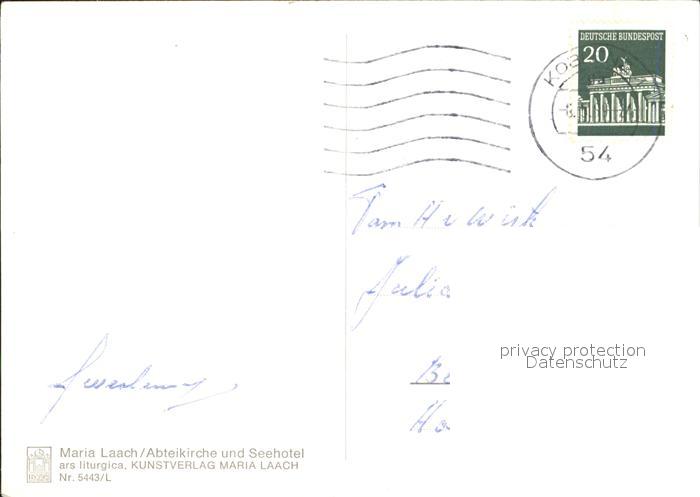 DEUTSCHE BUNDESPOST
20
54
Julia
Be
Ho
privacy protection
Datenschutz
Maria Laach/Abteikirche und Seehotel
ars liturgica, KUNSTVERLAG MARIA LAACH
Nr. 5443/L